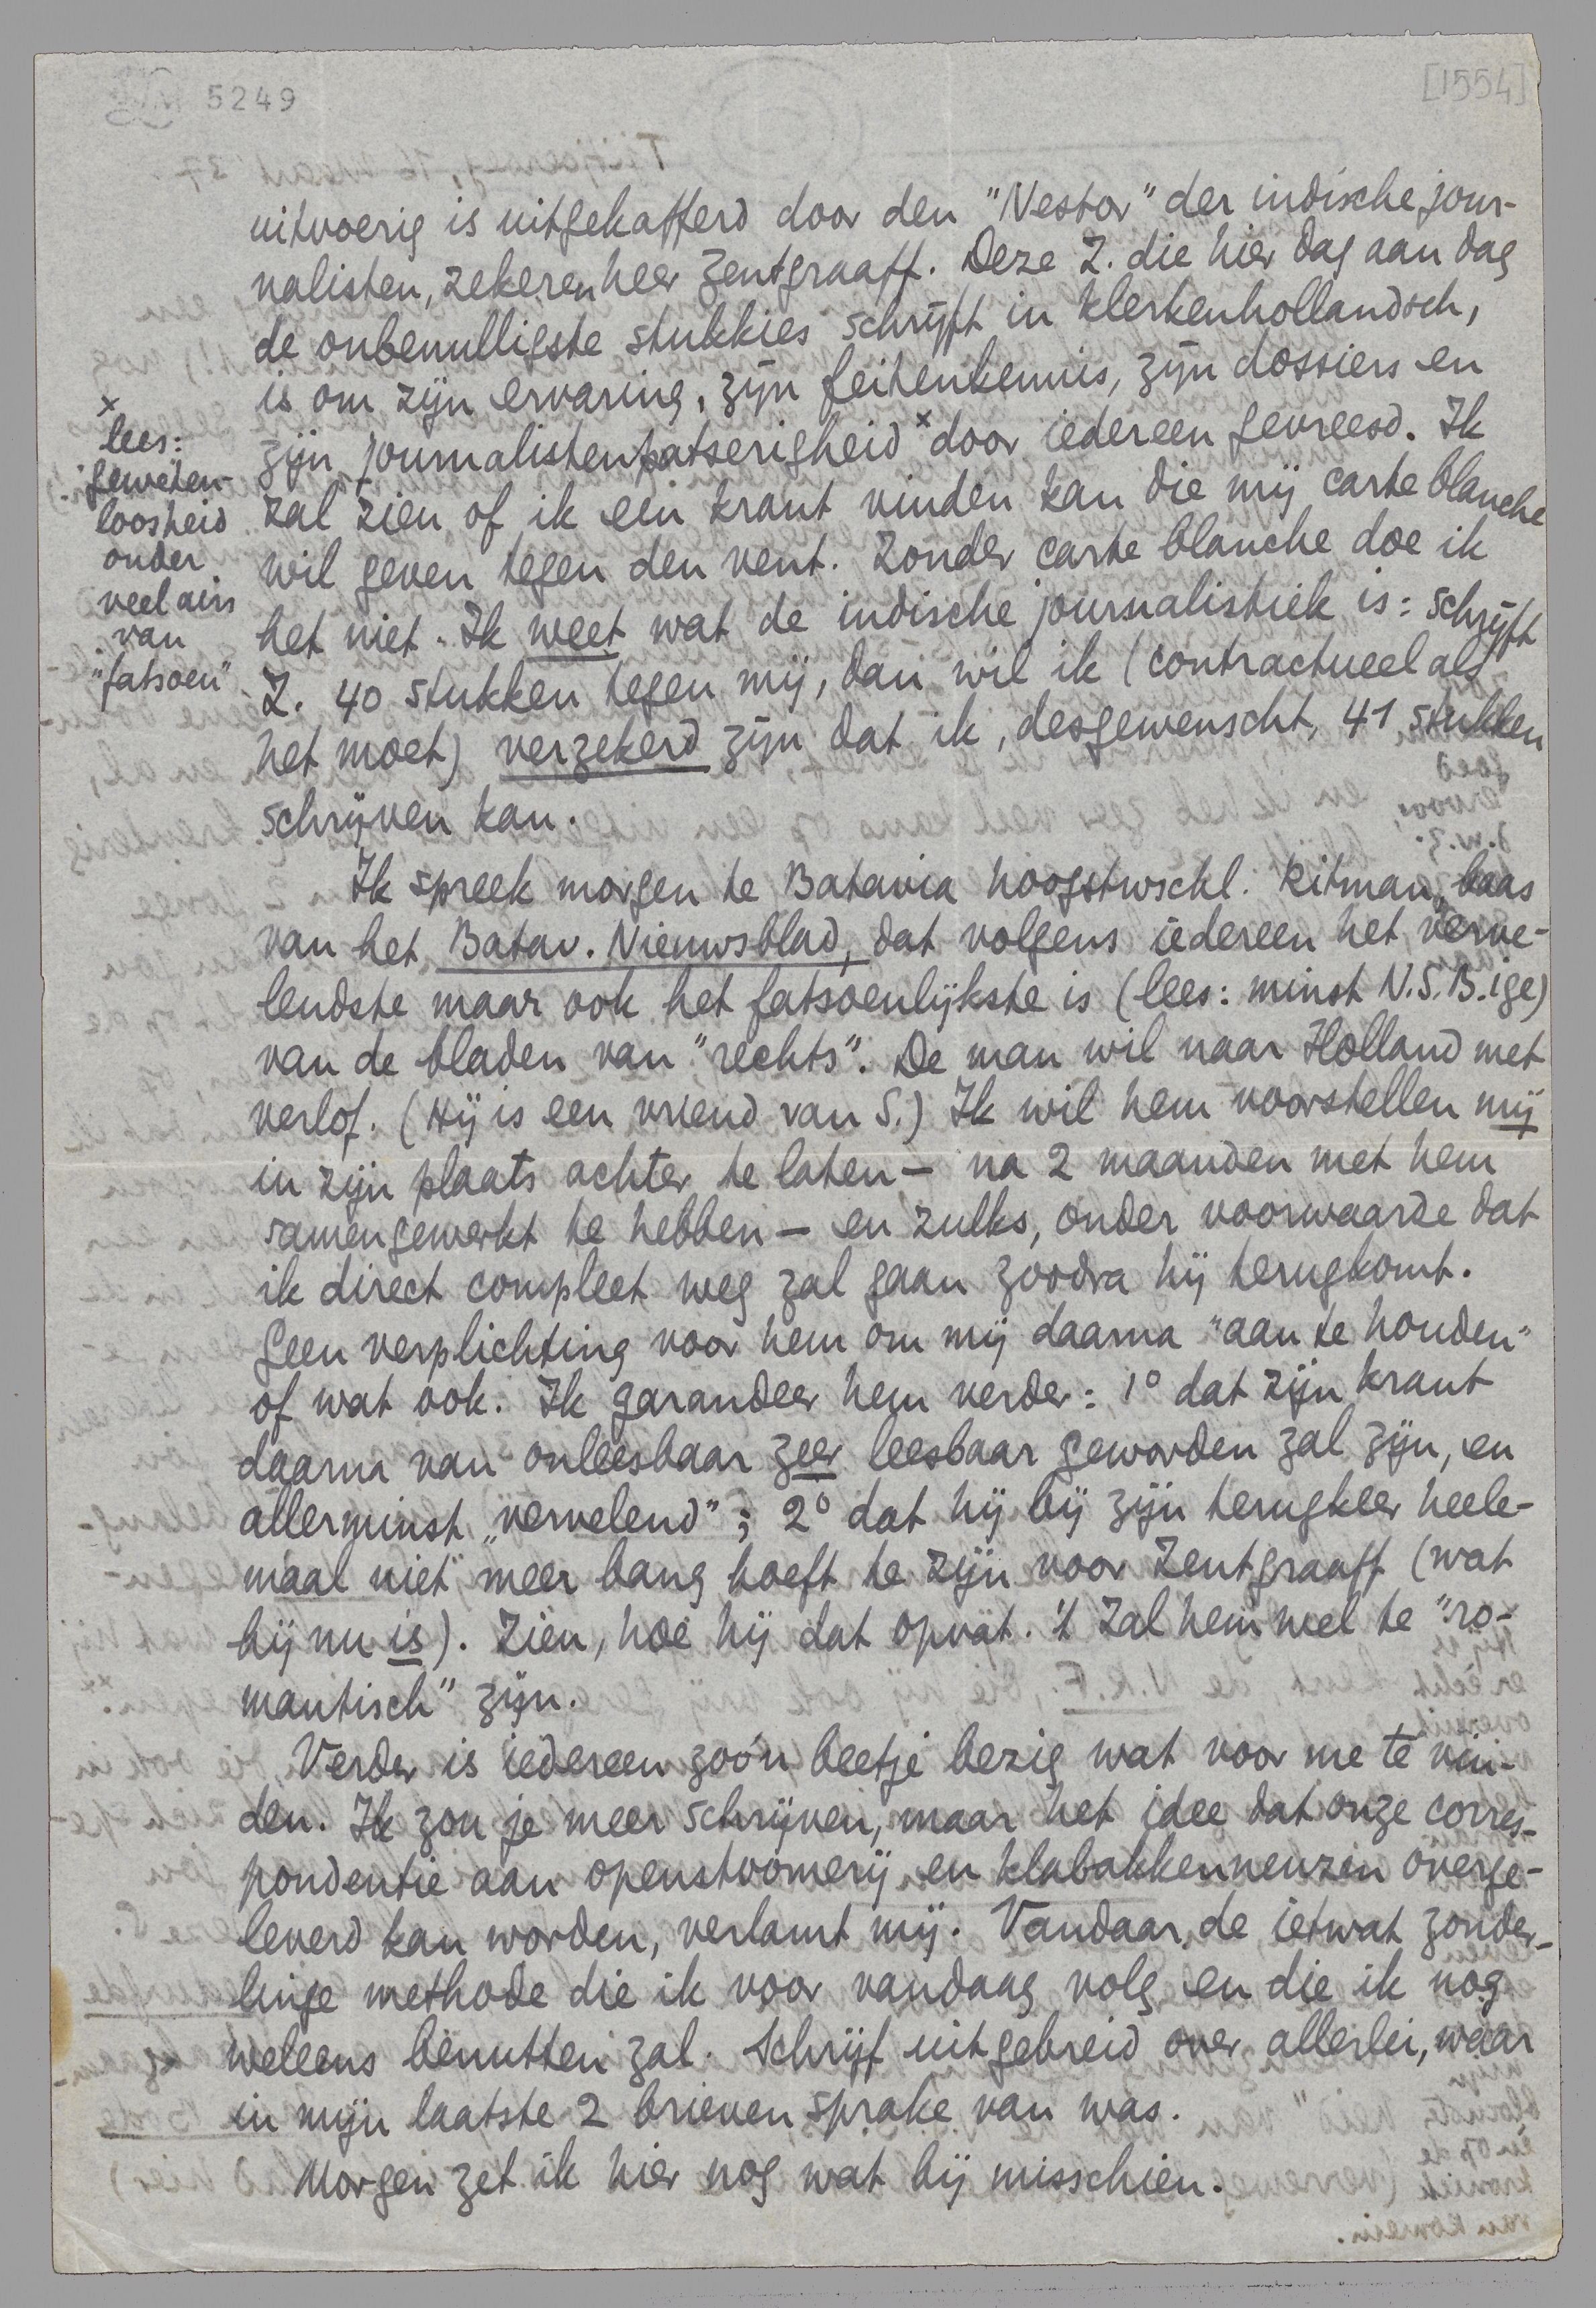 5249
[1554]
uitvoerig is uitgekafferd door den "Nestor" der indische jour-
nalisten, zekeren heer Zentgraaff. Deze Z. die hier dag aan dag
de onbenulligste stukkies schrijft in klerkenhollandsch,
is om zijn ervaring, zijn feitenkennis, zijn dossiers en
zijn journalistenpatserigheid x door iedereen gevreesd. Ik
zal zien of ik een krant vinden kan die mij carte blanche
wil geven tegen den vent. Zonder carte blanche doe ik
het niet. Ik weet wat de indische journalistiek is: schrijft
Z. 40 stukken tegen mij, dan wil ik (contractueel als
het moet) verzekerd zijn dat ik, desgewenscht, 41 stukken
schrijven kan.
x
lees:
geweten-
loosheid
onder
veel airs
van
"fatsoen"
Ik spreek morgen te Batavia hoogstwschl. Ritman, baas
van het Batav. Nieuwsblad, dat volgens iedereen het verve-
lendste maar ook het fatsoenlijkste is (lees: minst N.S.B.ige)
van de bladen van "rechts". De man wil naar Holland met
verlof. (Hij is een vriend van S.) Ik wil hem voorstellen mij
in zijn plaats achter te laten — na 2 maanden met hem
samengewerkt te hebben — en zulks, onder voorwaarde dat
ik direct compleet weg zal gaan zoodra hij terugkomt.
Geen verplichting voor hem om mij daarna "aan te houden"
of wat ook. Ik garandeer hem verder: 1° dat zijn krant
daarna van onleesbaar zeer leesbaar geworden zal zijn, en
allerminst "vervelend"; 2° dat hij bij zijn terugkeer heele-
maal niet meer bang hoeft te zijn voor Zentgraaff (wat
hij nu is). Zien, hoe hij dat opvat. 't Zal hem wel te "ro-
mantisch" zijn.
Verder is iedereen zoo'n beetje bezig wat voor me te vin-
den. Ik zou je meer schrijven, maar het idee dat onze corres-
pondentie aan openstoomerij en klabakkenneuzen overge-
leverd kan worden, verlamt mij. Vandaar de ietwat zonder-
linge methode die ik voor vandaag volg en die ik nog
weleens benutten zal. Schrijf uitgebreid over allerlei, waar
in mijn laatste 2 brieven sprake van was.
Morgen zet ik hier nog wat bij misschien.